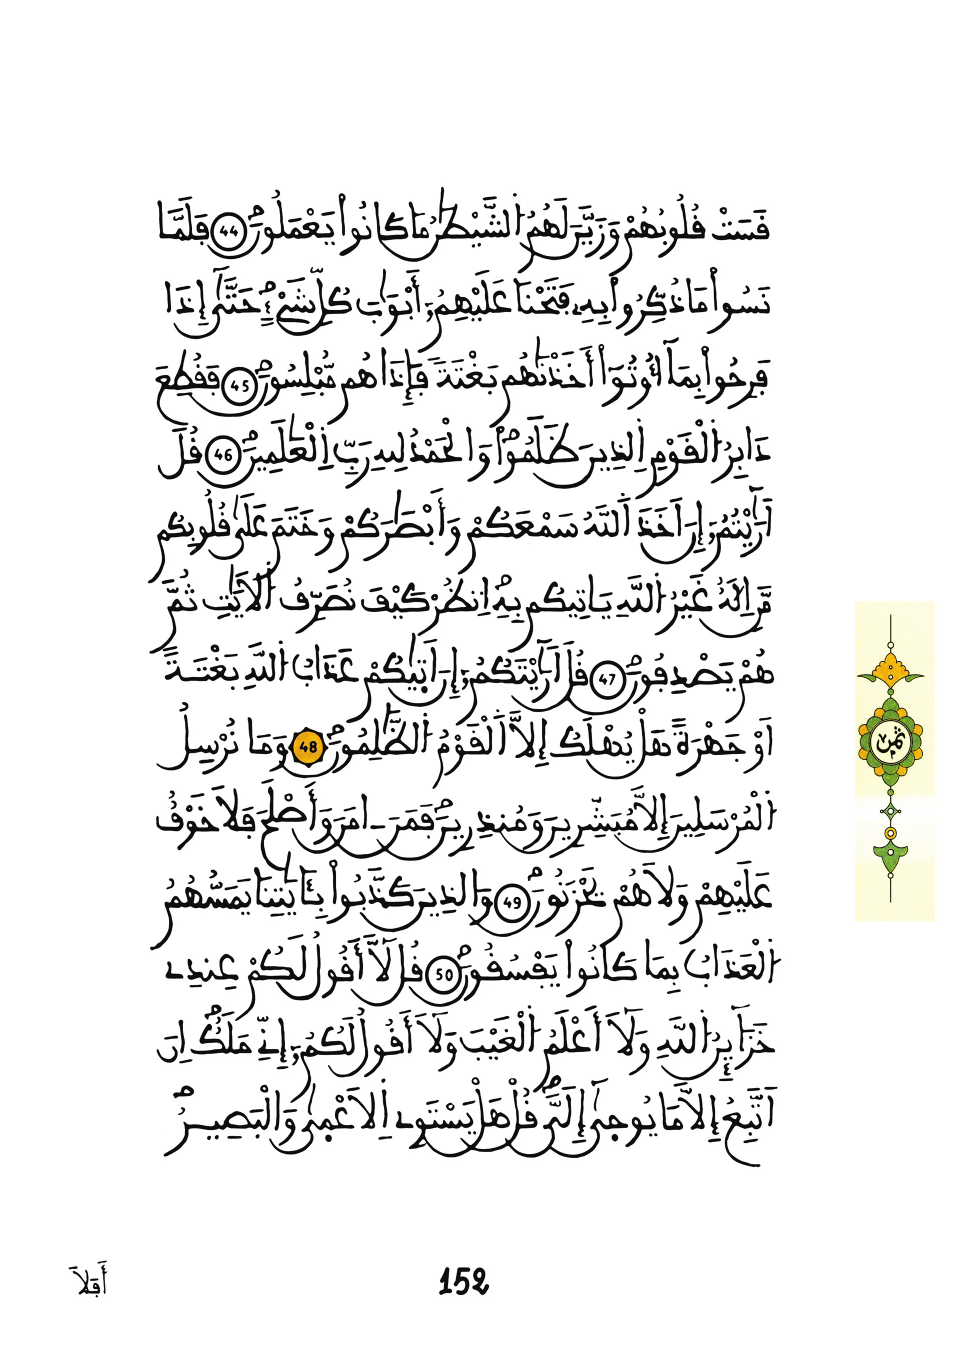 قَسَتْ قُلُوبُهُمْ وَزَيَّنَ لَهُمُ الشَّيْطَٰنُ مَا كَانُواْ يَعْمَلُونَ 44 فَلَمَّا
نَسُواْ مَا ذُكِّرُواْ بِهِۦ فَتَحْنَا عَلَيْهِمُۥٓ أَبْوَٰبَ كُلِّ شَيْءٍ حَتَّىٰٓ إِذَا
فَرِحُواْ بِمَآ أُوتُوٓاْ أَخَذْنَٰهُم بَغْتَةً فَإِذَا هُم مُّبْلِسُونَ 45 فَقُطِعَ
دَابِرُ الْقَوْمِ الذِينَ ظَلَمُواْ وَالْحَمْدُ لِلهِ رَبِّ الْعَٰلَمِينَ 46 قُلَ
اَرَٰيْتُمُۥٓ إِنَ اَخَذَ اَللَّهُ سَمْعَكُمْ وَأَبْصَٰرَكُمْ وَخَتَمَ عَلَىٰ قُلُوبِكُم
مَّنِ اِلَٰهٌ غَيْرُ اللَّهِ يَاتِيكُم بِهِ اِنظُرْ كَيْفَ نُصَرِّفُ الْأَيَٰتِ ثُمَّ
هُمْ يَصْدِفُونَ 47 قُلَ اَرَٰيْتَكُمُۥٓ إِنَ اَتِيٰكُمْ عَذَابُ اللَّهِ بَغْتَةً
اَوْ جَهْرَةً هَلْ يُهْلَكُ إِلَّا اَلْقَوْمُ الظَّٰلِمُونَ 48 وَمَا نُرْسِلُ
الْمُرْسَلِينَ إِلَّا مُبَشِّرِينَ وَمُنذِرِينَ فَمَنَ اٰمَنَ وَأَصْلَحَ فَلَا خَوْفٌ
عَلَيْهِمْ وَلَا هُمْ يَحْزَنُونَ 49 وَالذِينَ كَذَّبُواْ بِـَٔايَٰتِنَا يَمَسُّهُمُ
الْعَذَابُ بِمَا كَانُواْ يَفْسُقُونَ 50 قُل لَّآ أَقُولُ لَكُمْ عِندِے
خَزَآئِنُ اللَّهِ وَلَآ أَعْلَمُ الْغَيْبَ وَلَآ أَقُولُ لَكُمُۥٓ إِنِّے مَلَكٌ اِنَ
اَتَّبِعُ إِلَّا مَا يُوحَىٰٓ إِلَيَّ قُلْ هَلْ يَسْتَوِے اِلَاعْمَىٰ وَالْبَصِيرُ
ثمن
أَفَلَا
152